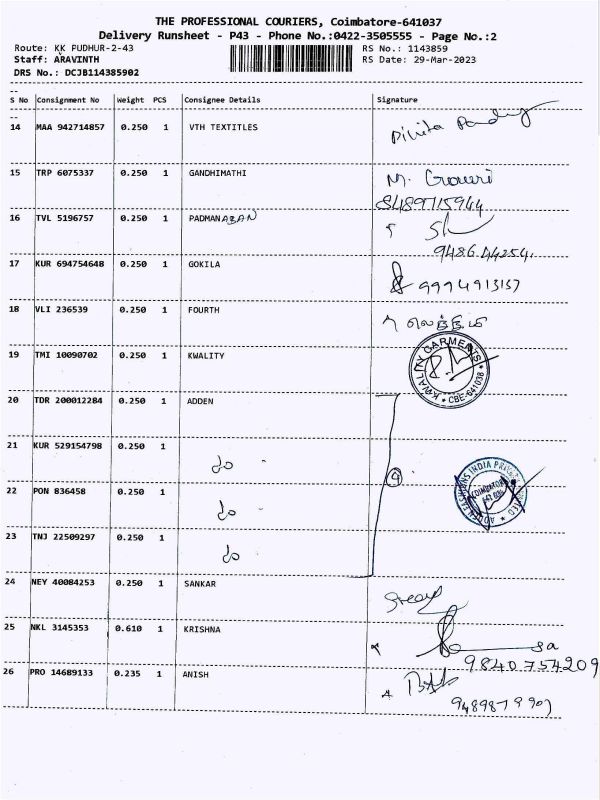 THE PROFESSIONAL COURIERS, Coimbatore-641037
Delivery Runsheet - P43 - Phone No.:0422-3505555 - Page No.:2
Route: KK PUDHUR-2-43 RS No.: 1143859
Staff: ARAVINTH RS Date: 29-Mar-2023
DRS No.: DCJB114385902
S No Consignment No Weight PCS Consignee Details Signature
14 MAA 942714857 0.250 1 VTH TEXTITLES
15 TRP 6075337 0.250 1 GANDHIMATHI M. Gowri
8489715944
16 TVL 5196757 0.250 1 PADMANABAN
9486442254
17 KUR 694754648 0.250 1 GOKILA 9994913137
18 VLI 236539 0.250 1 FOURTH
19 TMI 10090702 0.250 1 KWALITY KWALITY GARMENTS * CBE-641038 *
20 TDR 200012284 0.250 1 ADDEN
21 KUR 529154798 0.250 1 do
4
22 PON 836458 0.250 1 do
23 TNJ 22509297 0.250 1 do
24 NEY 40084253 0.250 1 SANKAR
25 NKL 3145353 0.610 1 KRISHNA
9840754209
26 PRO 14689133 0.235 1 ANISH